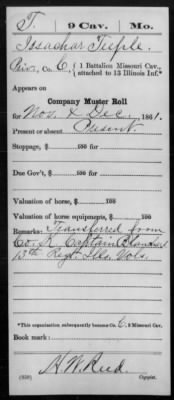 T. | 9 Cav. | Mo.
Issachar Tisple.
Priv., Co. C, { 1 Battalion Missouri Cav., attached to 13 Illinois Inf.*
Appears on
Company Muster Roll
for Nov. & Dec., 1861.
Present or absent, Present.
Stoppage, $ 100 for
Due Gov't, $ 100 for
Valuation of horse, $ 100
Valuation of horse equipments, $ 100
Remarks: Transferred from
Co. K, Captain
13th Regt. Ills. Vols.
*This organization subsequently became Co. C, 9 Missouri Cav.
Book mark:
H. W. Reed.
(858) Copyist.